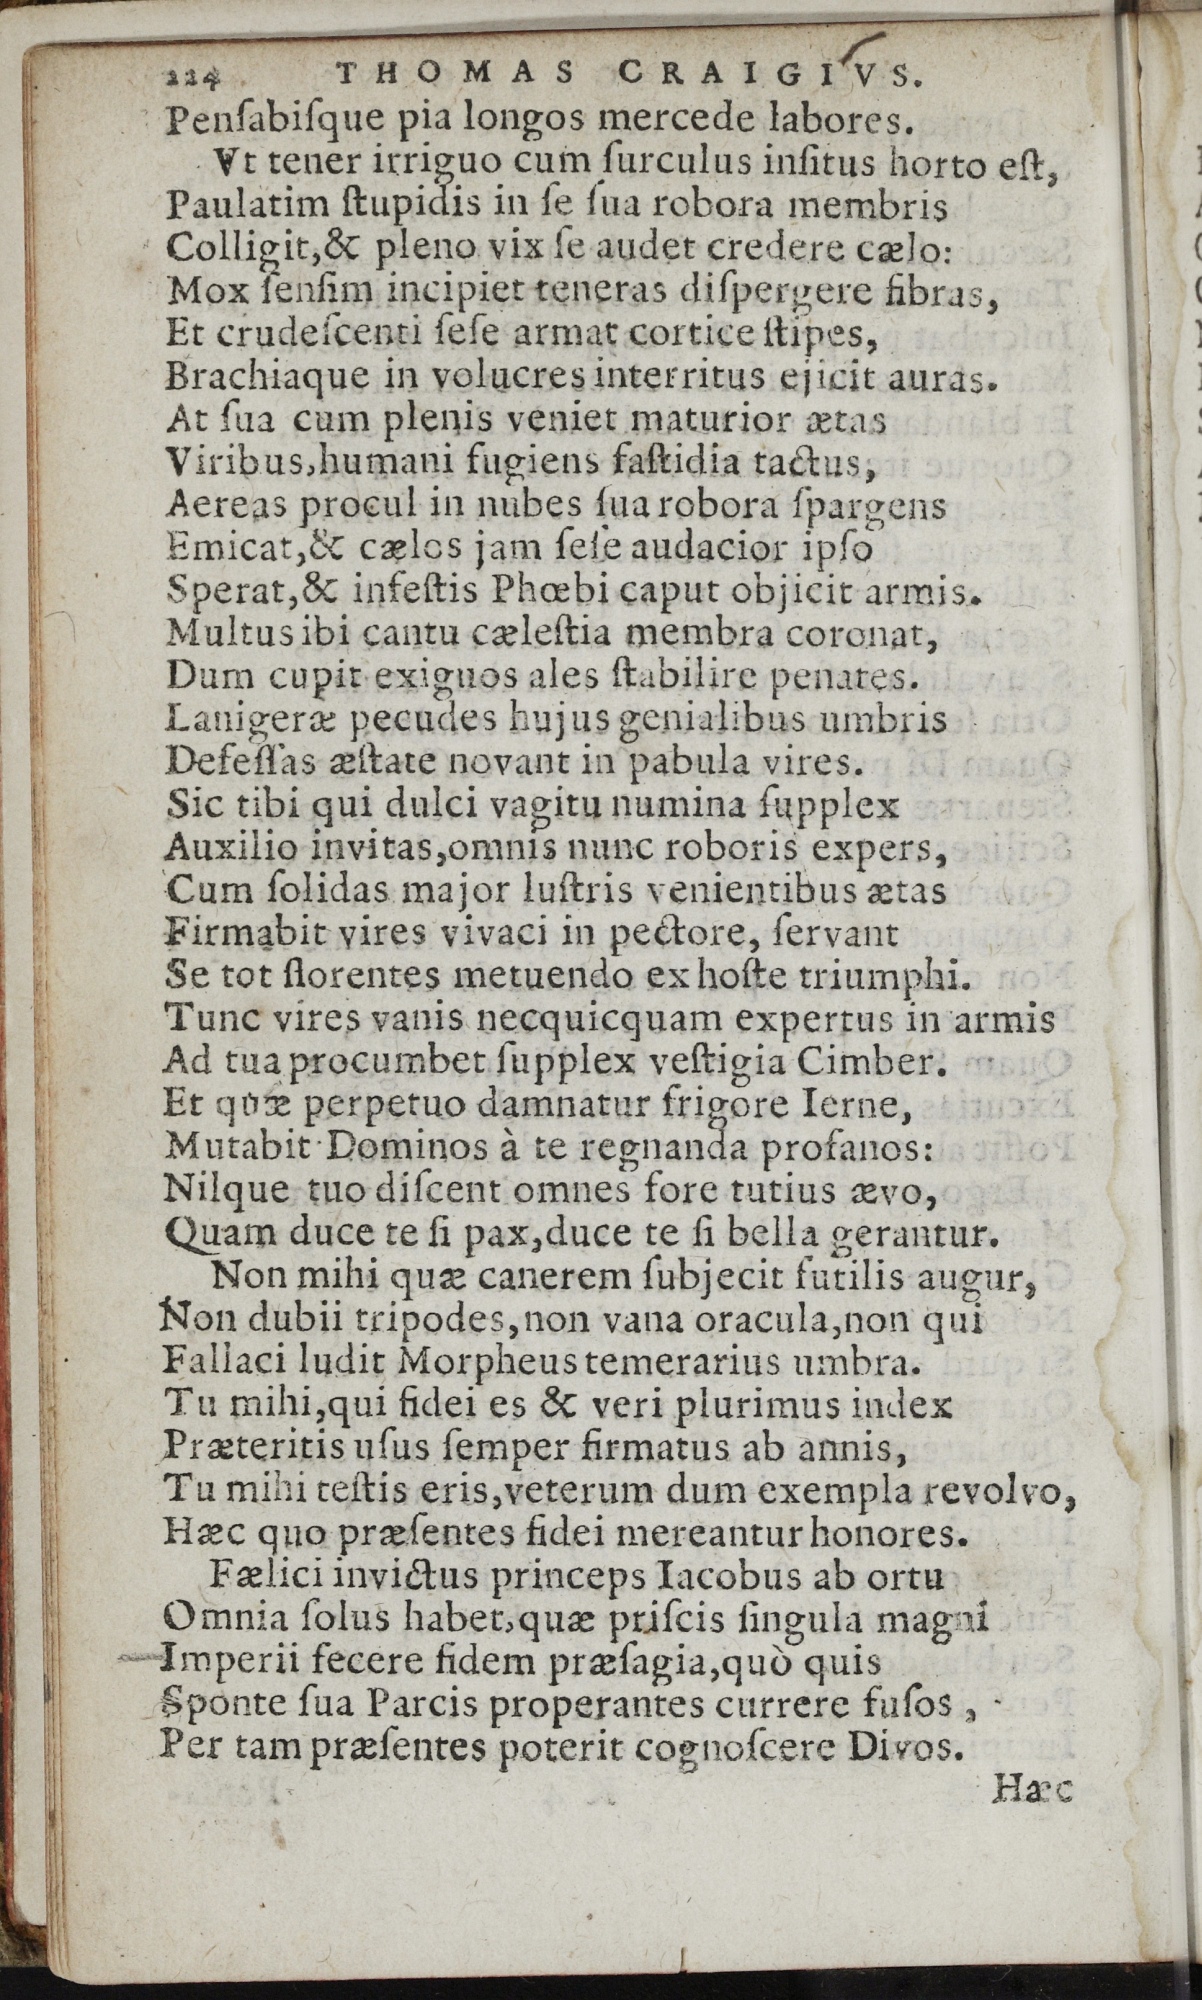 224 THOMAS CRAIGIVS.
Penſabiſque pia longos mercede labores.
Vt tener irriguo cum ſurculus inſitus horto eſt,
Paulatim ſtupidis in ſe ſua robora membris
Colligit,& pleno vix ſe audet credere cælo:
Mox ſenſim incipiet teneras diſpergere fibras,
Et crudeſcenti ſeſe armat cortice ſtipes,
Brachiaque in volucres interritus ejicit auras.
At ſua cum plenis veniet maturior ætas
Viribus,humani fugiens faſtidia tactus,
Aereas procul in nubes ſua robora ſpargens
Emicat,& cælos jam ſeſe audacior ipſo
Sperat,& infeſtis Phœbi caput objicit armis.
Multus ibi cantu cæleſtia membra coronat,
Dum cupit exiguos ales ſtabilire penates.
Lanigeræ pecudes hujus genialibus umbris
Defeſſas æſtate novant in pabula vires.
Sic tibi qui dulci vagitu numina ſupplex
Auxilio invitas,omnis nunc roboris expers,
Cum ſolidas major luſtris venientibus ætas
Firmabit vires vivaci in pectore, ſervant
Se tot florentes metuendo ex hoſte triumphi.
Tunc vires vanis necquicquam expertus in armis
Ad tua procumbet ſupplex veſtigia Cimber.
Et quæ perpetuo damnatur frigore Ierne,
Mutabit Dominos à te regnanda profanos:
Nilque tuo diſcent omnes fore tutius ævo,
Quam duce te ſi pax,duce te ſi bella gerantur.
Non mihi quæ canerem ſubjecit futilis augur,
Non dubii tripodes,non vana oracula,non qui
Fallaci ludit Morpheus temerarius umbra.
Tu mihi,qui fidei es & veri plurimus index
Præteritis uſus ſemper firmatus ab annis,
Tu mihi teſtis eris,veterum dum exempla revolvo,
Hæc quo præſentes fidei mereantur honores.
Fælici invictus princeps Iacobus ab ortu
Omnia ſolus habet,quæ priſcis ſingula magni
Imperii fecere fidem præſagia,quò quis
Sponte ſua Parcis properantes currere fuſos ,
Per tam præſentes poterit cognoſcere Divos.
Hæc